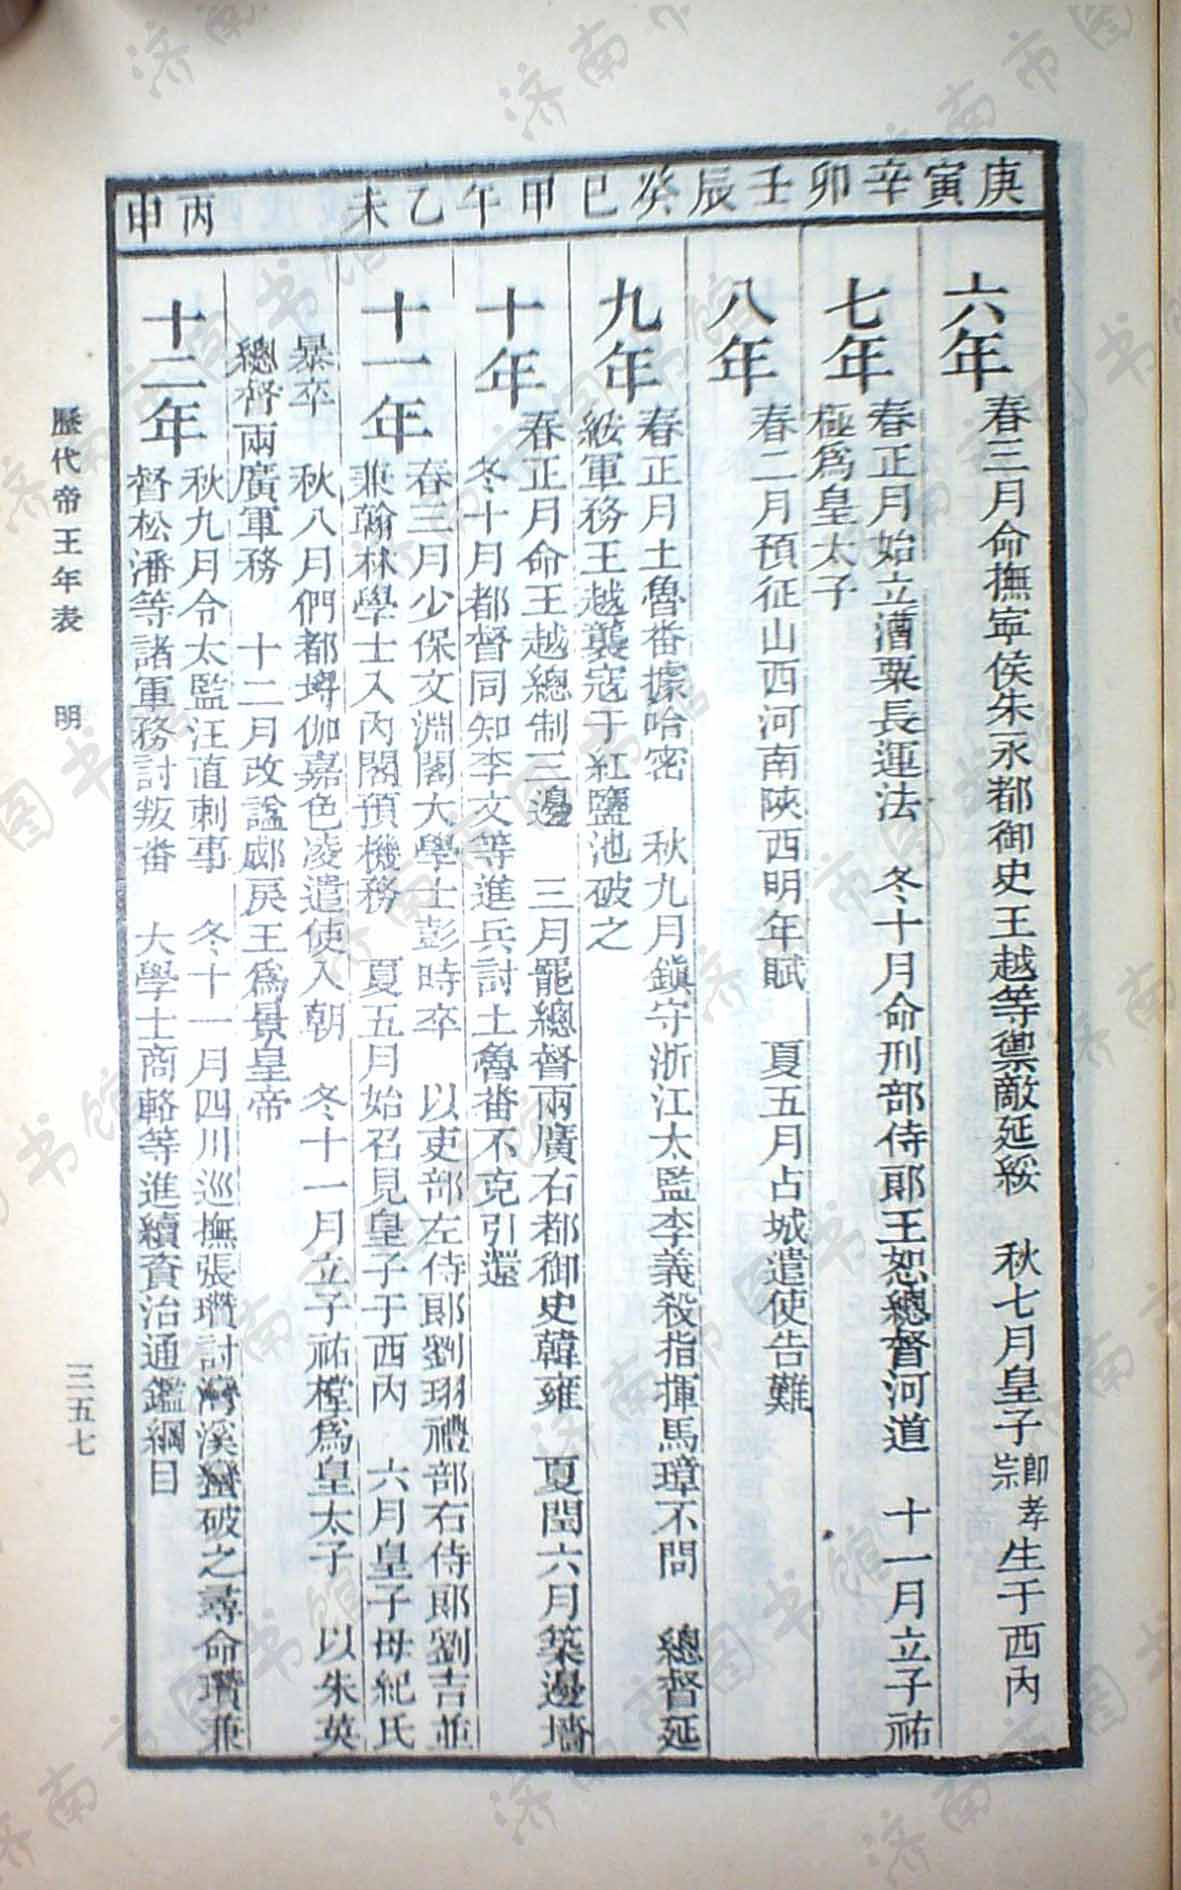 庚寅 辛卯 壬辰 癸巳 甲午 乙未 丙申
六年 春三月命撫寧侯朱永都御史王越等禦敵延綏　秋七月皇子卽孝宗生于西內
七年 春正月始立漕粟長運法　冬十月命刑部侍郞王恕總督河道　十一月立子祐
極爲皇太子
八年 春二月預征山西河南陝西明年賦　夏五月占城遣使告難
九年 春正月土魯番據哈密　秋九月鎭守浙江太監李義殺指揮馬璋不問　總督延
綏軍務王越襲寇于紅鹽池破之
十年 春正月命王越總制三邊　三月罷總督兩廣右都御史韓雍　夏閏六月築邊墻
冬十月都督同知李文等進兵討土魯番不克引還
十一年 春三月少保文淵閣大學士彭時卒　以吏部左侍郞劉珝禮部右侍郞劉吉並
兼翰林學士入內閣預機務　夏五月始召見皇子于西內　六月皇子母紀氏
暴卒　秋八月們都埓伽嘉色凌遣使入朝　冬十一月立子祐樘爲皇太子　以朱英
總督兩廣軍務　十二月改謚郕戾王爲景皇帝
十二年 秋九月令太監汪直刺事　冬十一月四川巡撫張瓚討灣溪蠻破之尋命瓚兼
督松潘等諸軍務討叛番　大學士商輅等進續資治通鑑綱目
歷代帝王年表　明
三五七
济南市图书馆